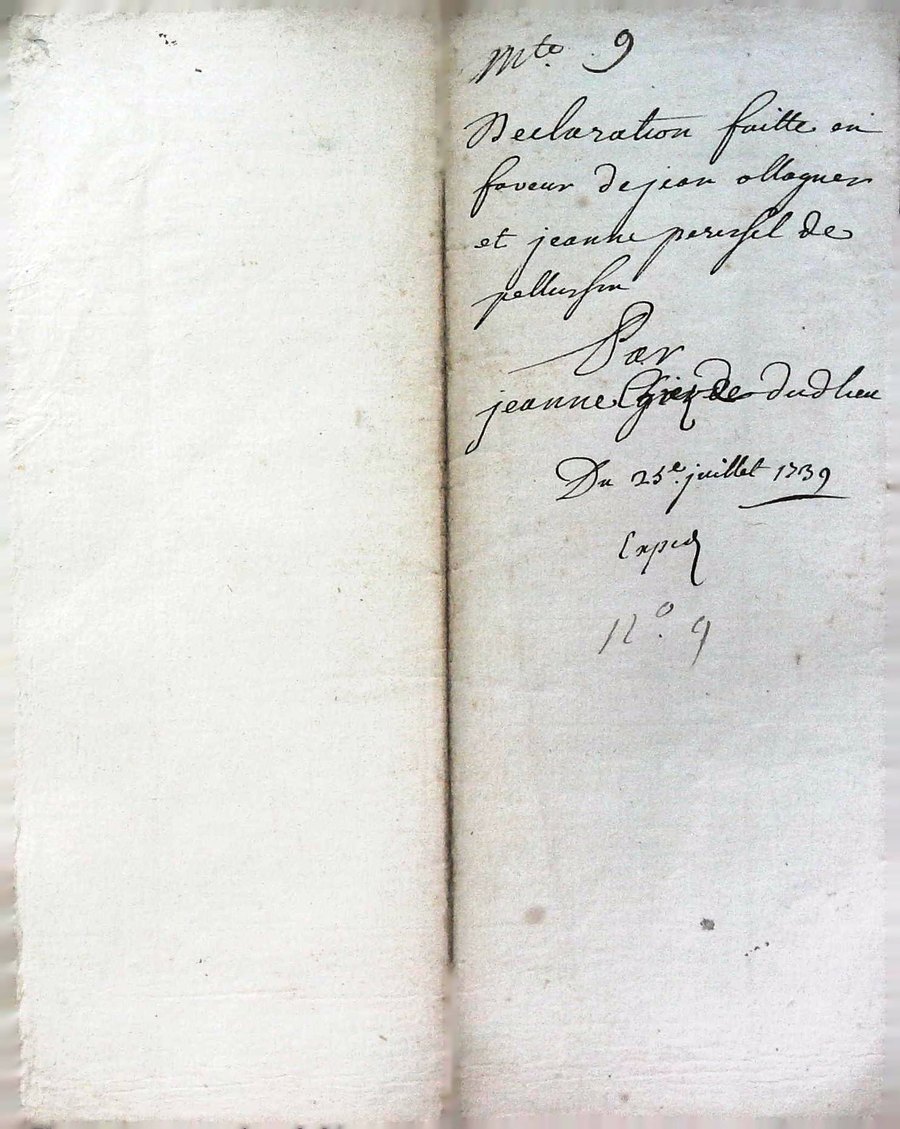 Mte 9
Declaration faitte en
faveur de jean ollagner
et jeanne peressel de
pellussin
Par
jeanne dudt lieu
Du 25e juillet 1739
Exped
No. 9